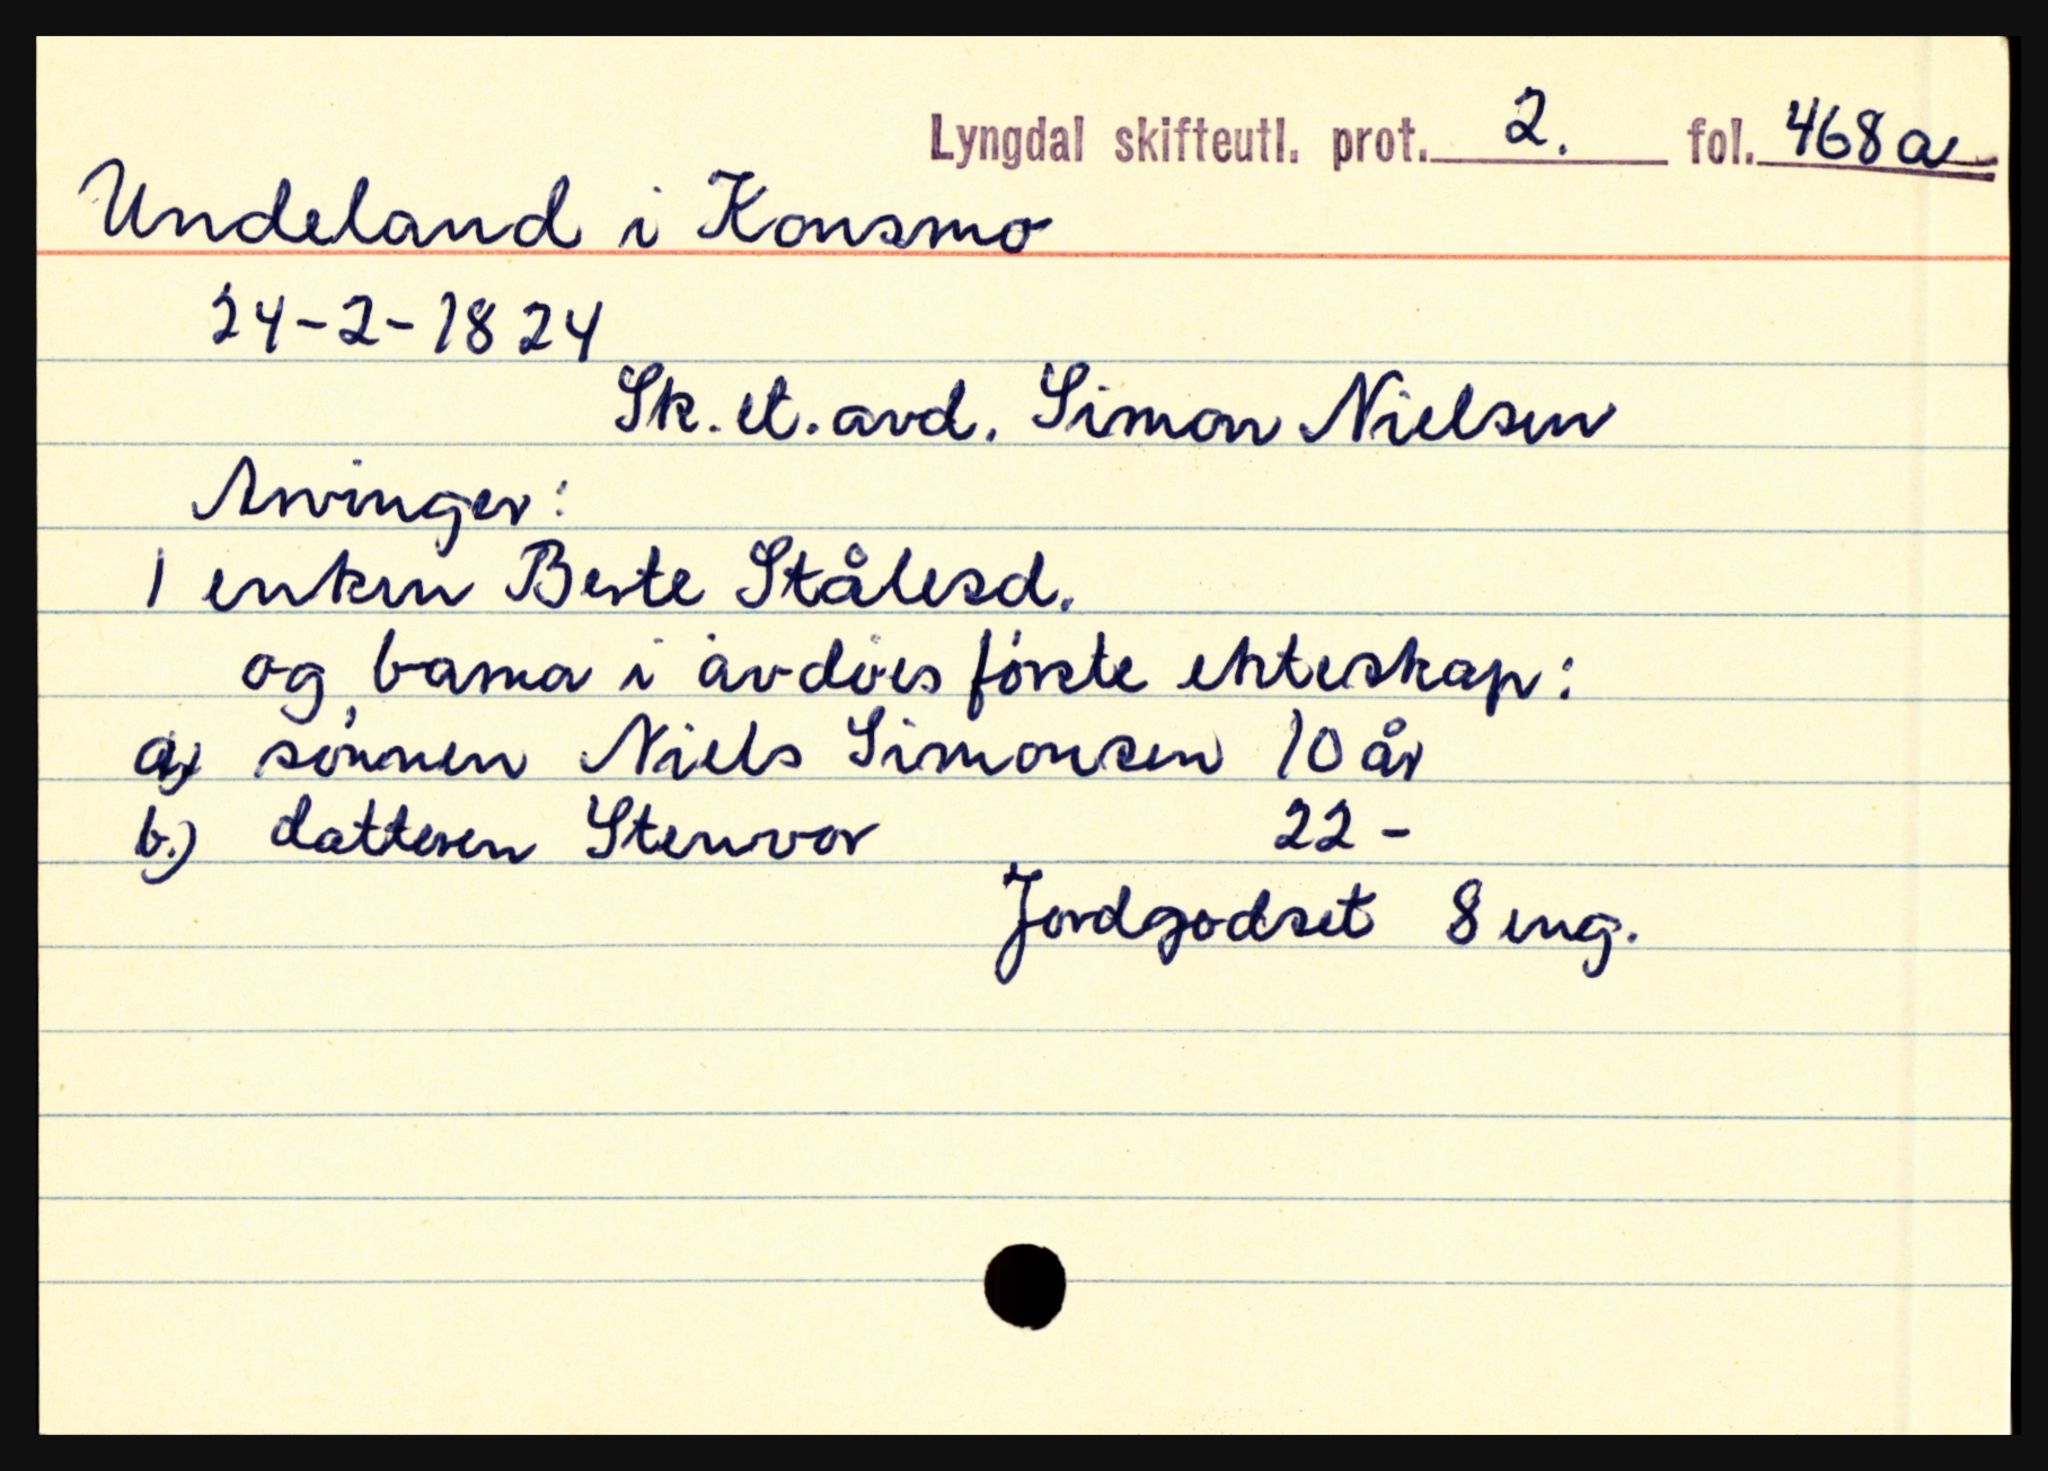 Lyngdal skifteutl. prot. 2. fol. 468a
Undeland i Konsmo
24-2-1824
Sk. et. avd. Simon Nielsen
Arvinger:
1 enken Berte Stålesd.
og barna i avdöes förste ekteskap:
a) sönnen Niels Simonsen 10 år
b.) datteren Stenvor 22 -
Jordgodset 8 eng.